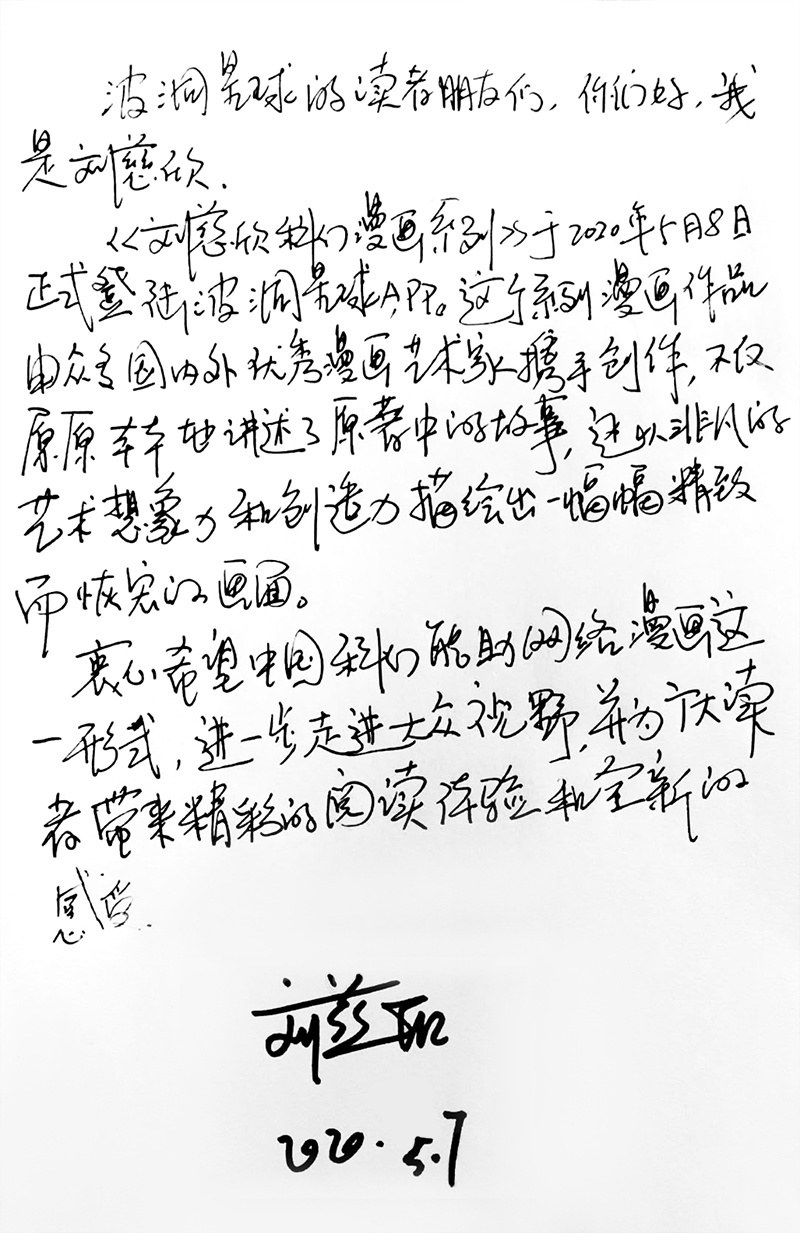 波洞星球的读者朋友们，你们好，我
是刘慈欣.
《刘慈欣科幻漫画系列》于2020年5月8日
正式登陆波洞星球APP。这个系列漫画作品
由众多国内外优秀漫画艺术家携手创作，不仅
原原本本地讲述了原著中的故事，还以非凡的
艺术想象力和创造力描绘出一幅幅精致
而恢宏的画面。
衷心希望中国科幻能助网络漫画这
一形式，进一步走进大众视野，并为广大读
者带来精彩的阅读体验和全新的
感受.
刘慈欣
2020.5.7